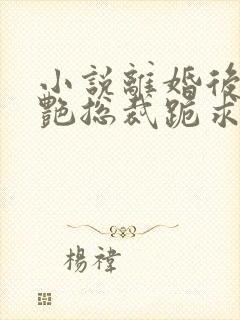 小說離婚後
艷總裁跪求
楊禕